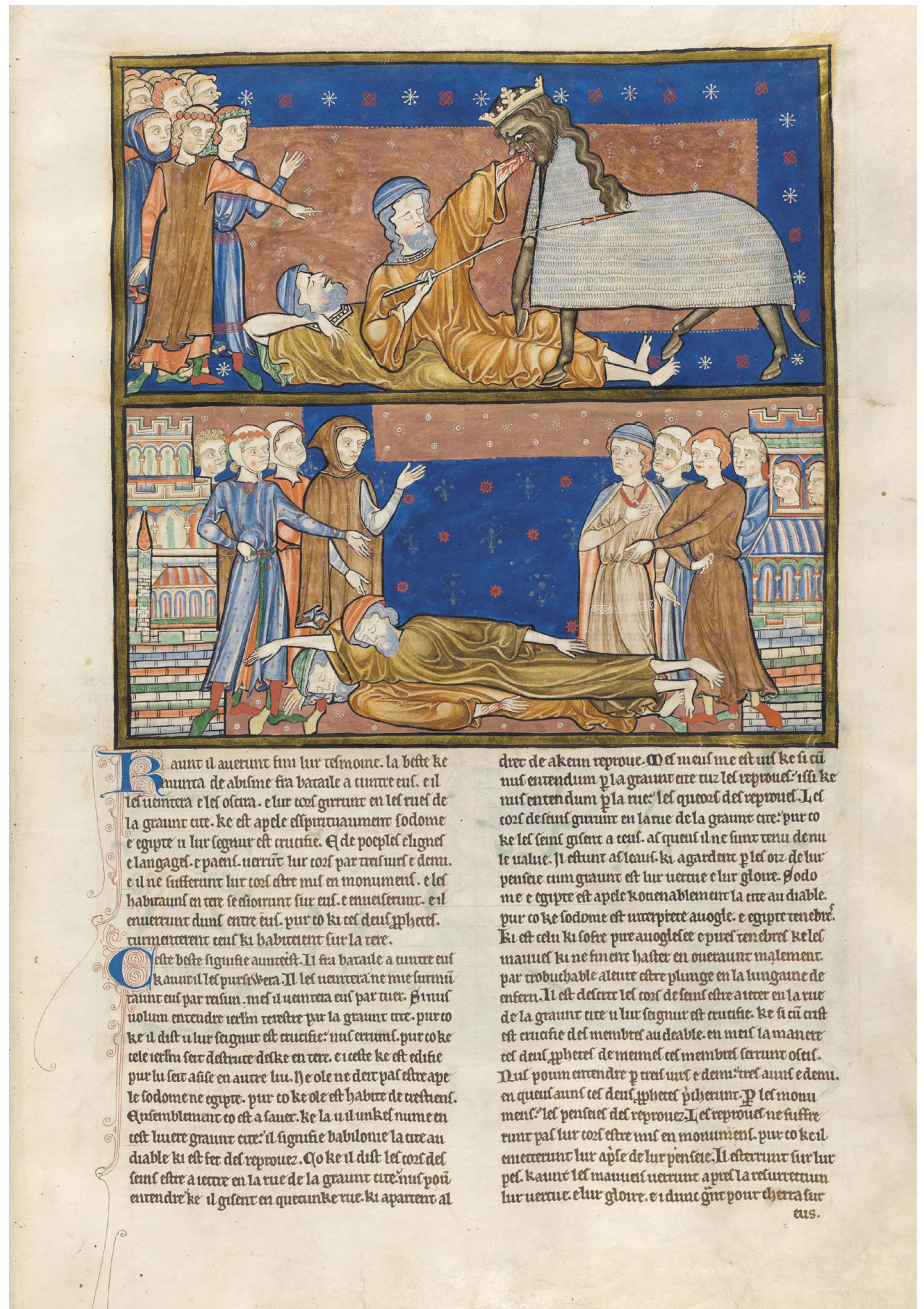 Kaunt il averunt fini lur tesmoine. la beste ke
munta de abisme fra bataile a cuntre eus. e il
les veintera e les oscira. e lur cors girrunt en les rues de
la graunt cite. ke est apele espirituaument sodome
e egipte u lur segnur est crucifie. E de poeples e lignes
e langages. e paens. verrunt lur cors par treis iurs e demi.
e il ne sufferunt lur cors estre mis en monumens. e les
habitauns en tere se esioirunt sur eus. e enveiserunt. e il
enverrunt duns entre eus. pur co ki ces deus pphetes.
turmenterent ceus ki habiteient sur la tere.
Ceste beste signifie auntecrist. Il fra bataile a cuntre eus
kaunt il les pursiwera. Il les veintera ne mie surmun
taunt eus par resun. mes il veintera eus par tuer. Si nus
volum entendre ierlm terestre par la graunt cite. pur co
ke il dist u lur seignur est crucifie. nus errums. pur co ke
cele ierlm seit destrute deske en tere. e iceste ke est edifie
pur lu seit asise en autre liu. he ole ne deit pas estre ape
le sodome ne egipte. pur co ke ole est habite de crestiens.
Ensemblement co est a saver. ke la u il unkes nume en
cest livere graunt cite. il signifie babilonie la cite au
diable ki est fet des reprovez. Co ke il dist les cors des
seins estre a ietter en la rue de la graunt cite. nus pou
entendre ke il gisent en quecunke rue. ki apartent al
dret de akeun reprove. Mes meus me est vis ke si cu
nus entendum p la graunt cite tuz les reproves. issi ke
nus entendum p la rue. les queors des reproves. Les
cors de seins girrunt en la rue de la graunt cite. pur co
ke les seins gisent a ceus. as queus il ne sunt tenu de nu
le value. Il estunt as leaus. ki agardent p les oiz de lur
penseie cum graunt est lur vertue e lur glorie. Sodo
me e egipte est apele konenablement la cite au diable.
pur co ke sodome est interprete avogle. e egipte tenebre.
Ki est celu ki sofre pure avoglesce e pires tenebres ke les
mauves ki ne finent haster en overaunt malement.
par trobuchable aleure estre plunge en la lungaine de
enfern. Il est descrit les cors de seins estre a ieter en la rue
de la graunt cite u lur seignur est crucifie. ke si cu crist
est crucifie des membres au deable. en meis la manere
ces deus pphetes de meimes ces membres serunt oscis.
Nus poum entendre p treis iurs e demi. tres anns e demi.
en queus anns ces deus pphetes pcherunt. P les monu
mens. les penseies des reprovez. Les reproves ne suffre
runt pas lur cors estre mis en monumens. pur co ke il
enietterunt lur apse de lur penseie. Il esterrunt sur lur
pes. kaunt les mauveis verrunt apres la resurrectiun
lur vertue. e lur glorie. e i dunc gnt pour cherra sur
eus.